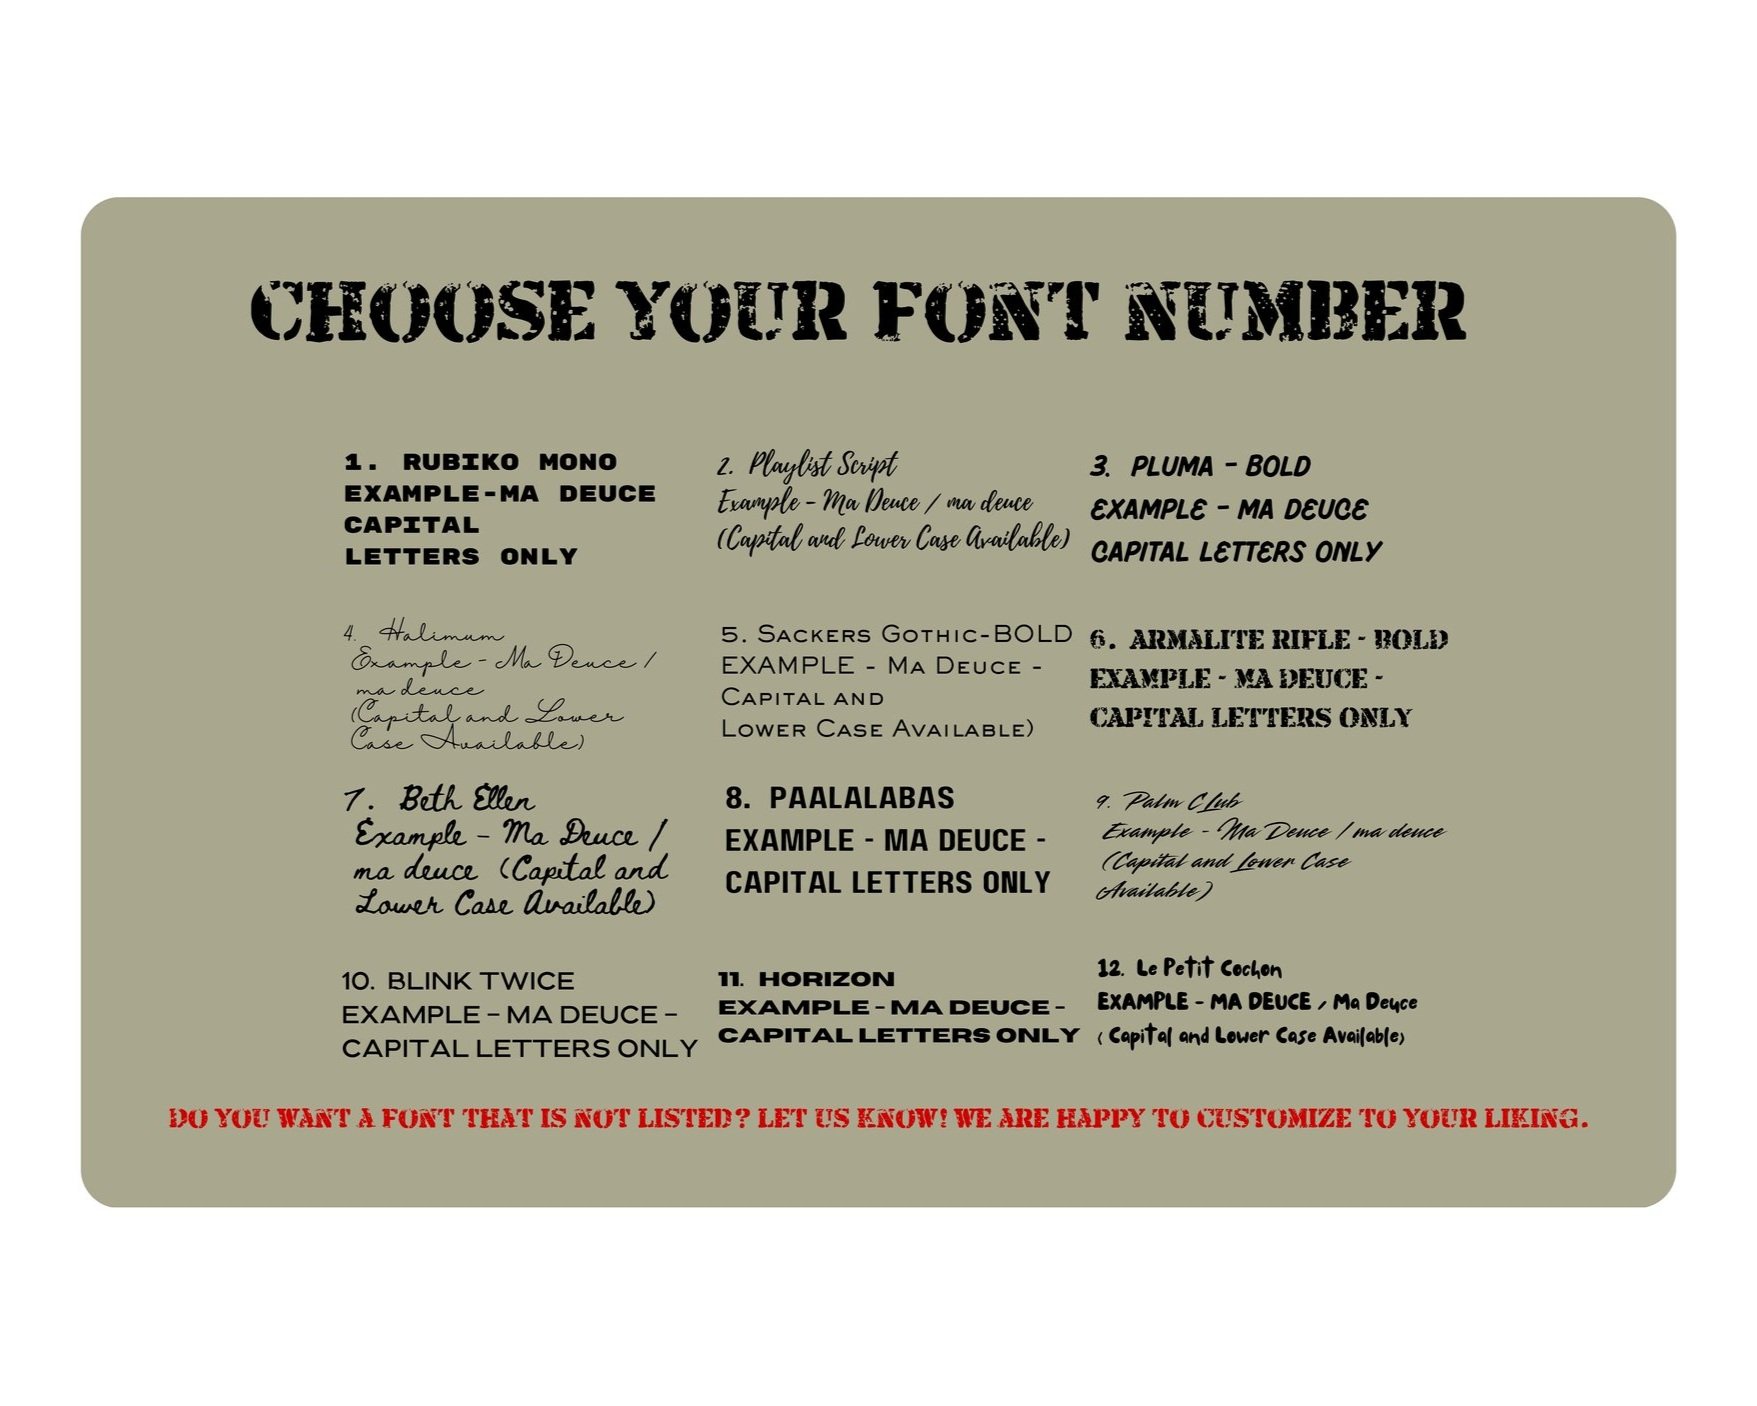 CHOOSE YOUR FONT NUMBER
1. RUBIKO MONO
EXAMPLE-MA DEUCE
CAPITAL
LETTERS ONLY
2. Playlist Script
Example - Ma Deuce / ma deuce
(Capital and Lower Case Available)
3. PLUMA - BOLD
EXAMPLE - MA DEUCE
CAPITAL LETTERS ONLY
4. Halimum
Example - Ma Deuce /
ma deuce
(Capital and Lower
Case Available)
5. Sackers Gothic-BOLD
EXAMPLE - Ma Deuce -
Capital and
Lower Case Available)
6. ARMALITE RIFLE - BOLD
EXAMPLE - MA DEUCE -
CAPITAL LETTERS ONLY
7. Beth Ellen
Example - Ma Deuce /
ma deuce (Capital and
Lower Case Available)
8. PAALALABAS
EXAMPLE - MA DEUCE -
CAPITAL LETTERS ONLY
9. Palm CLub
Example - Ma Deuce / ma deuce
(Capital and Lower Case
Available)
10. BLINK TWICE
EXAMPLE - MA DEUCE -
CAPITAL LETTERS ONLY
11. HORIZON
EXAMPLE - MA DEUCE -
CAPITAL LETTERS ONLY
12. Le Petit Cochon
EXAMPLE - MA DEUCE / Ma Deuce
( Capital and Lower Case Available)
DO YOU WANT A FONT THAT IS NOT LISTED? LET US KNOW! WE ARE HAPPY TO CUSTOMIZE TO YOUR LIKING.